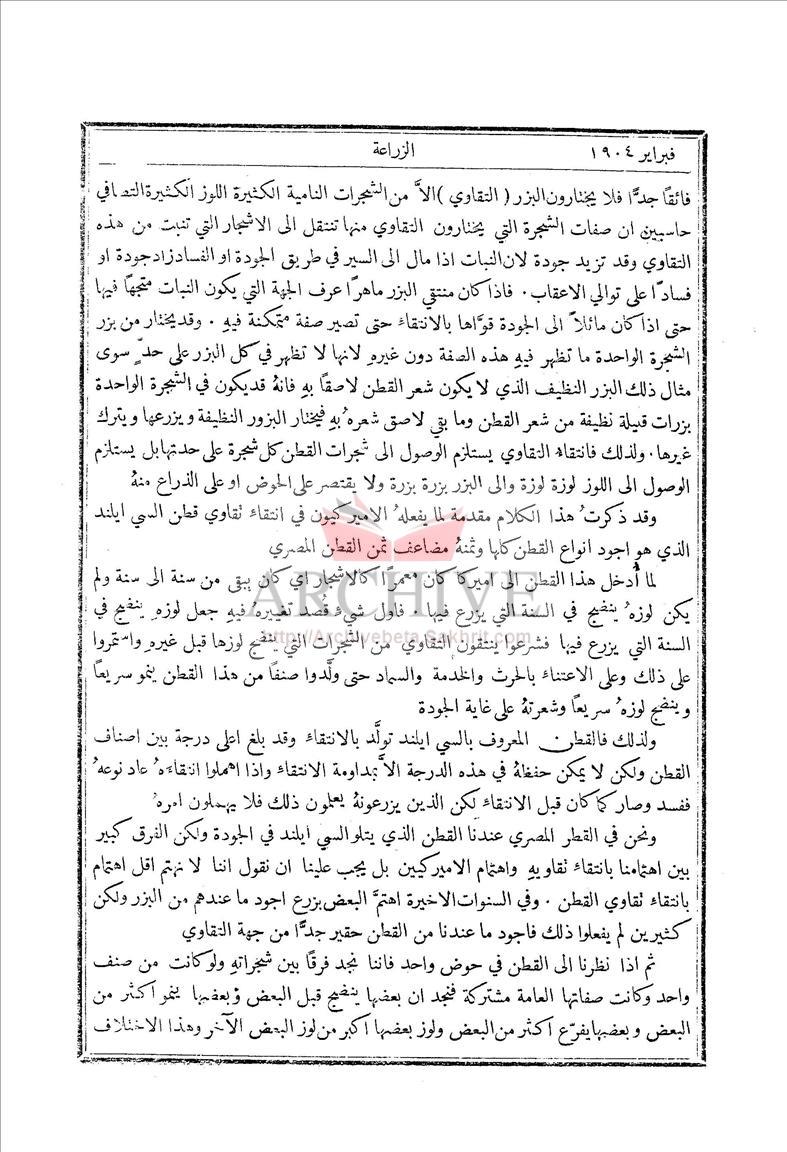 فبراير ١٩٠٤
الزراعة
فائقًا جدًّا فلا يختارون البزر ( التقاوي ) الاَّ من الشجرات النامية الكثيرة اللوز الكثيرة التصافي
حاسبين ان صفات الشجرة التي يختارون التقاوي منها تنتقل الى الاشجار التي تنبت من هذه
التقاوي وقد تزيد جودة لان النبات اذا مال الى السير في طريق الجودة او الفساد زاد جودة او
فسادًا على توالي الاعقاب . فاذا كان منتقي البزر ماهرًا عرف الجهة التي يكون النبات متجهًا فيها
حتى اذا كان مائلاً الى الجودة قوَّاها بالانتقاء حتى تصير صفة متمكنة فيهِ . وقد يختار من بزر
الشجرة الواحدة ما تظهر فيهِ هذه الصفة دون غيرهِ لانها لا تظهر في كل البزر على حدٍّ سوى
مثال ذلك البزر النظيف الذي لا يكون شعر القطن لاصقًا بهِ فانهُ قد يكون في الشجرة الواحدة
بزرات قليلة نظيفة من شعر القطن وما بقي لاصق شعرهُ بهِ فيختار البزور النظيفة ويزرعها ويترك
غيرها . ولذلك فانتقاء التقاوي يستلزم الوصول الى شجرات القطن كل شجرة على حدتها بل يستلزم
الوصول الى اللوز لوزة لوزة والى البزر بزرة بزرة ولا يقتصر على الحوض او على الذراع منهُ
وقد ذكرتُ هذا الكلام مقدمة لما يفعلهُ الاميركيون في انتقاء تقاوي قطن السي ايلند
الذي هو اجود انواع القطن كلها وثمنهُ مضاعف ثمن القطن المصري
لما أُدخل هذا القطن الى اميركا كان معمرًا كالاشجار اي كان يبقى من سنة الى سنة ولم
يكن لوزهُ ينضج في السنة التي يزرع فيها . فاول شيءٍ قُصد تغييرهُ فيهِ جعل لوزهِ ينضج في
السنة التي يزرع فيها فشرعوا ينتقون التقاوي من الشجرات التي ينضج لوزها قبل غيرهِ واستمروا
على ذلك وعلى الاعتناء بالحرث والخدمة والسماد حتى ولَّدوا صنفًا من هذا القطن ينمو سريعًا
وينضج لوزهُ سريعًا وشعرتهُ على غاية الجودة
ولذلك فالقطن المعروف بالسي ايلند تولَّد بالانتقاء وقد بلغ اعلى درجة بين اصناف
القطن ولكن لا يمكن حفظهُ في هذه الدرجة الاَّ بمداومة الانتقاء واذا اهملوا انتقاءهُ عاد نوعهُ
ففسد وصار كما كان قبل الانتقاء لكن الذين يزرعونهُ يعلمون ذلك فلا يهملون امرهُ
ونحن في القطر المصري عندنا القطن الذي يتلو السي ايلند في الجودة ولكن الفرق كبير
بين اهتمامنا بانتقاء تقاويهِ واهتمام الاميركيين بل يجب علينا ان نقول اننا لا نهتم اقل اهتمام
بانتقاء تقاوي القطن . وفي السنوات الاخيرة اهتمَّ البعض بزرع اجود ما عندهم من البزر ولكن
كثيرين لم يفعلوا ذلك فاجود ما عندنا من القطن حقير جدًّا من جهة التقاوي
ثم اذا نظرنا الى القطن في حوض واحد فاننا نجد فرقًا بين شجراتهِ ولو كانت من صنف
واحد وكانت صفاتها العامة مشتركة فنجد ان بعضها ينضج قبل البعض وبعضها ينمو اكثر من
البعض وبعضها يفرّع اكثر من البعض ولوز بعضها اكبر من لوز البعض الآخر وهذا الاختلاف
ARCHIVE
http://Archivebeta.Sakhrit.com